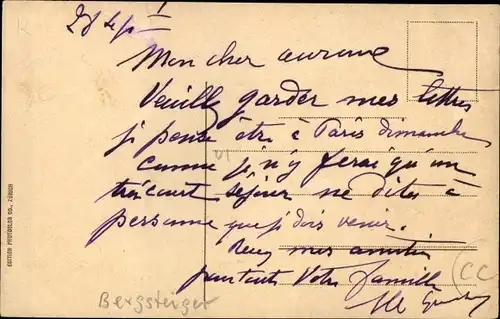 28 Sept
Mon cher
Veuillez garder mes lettres
je pense être à Paris dimanche
comme je n'y ferai qu'un
très court séjour ne dites à
personne que je dois venir.
mes amitiés
pour toute votre famille
CC
VI
Bergsteiger
EDITION PHOTOGLOB CO., ZÜRICH